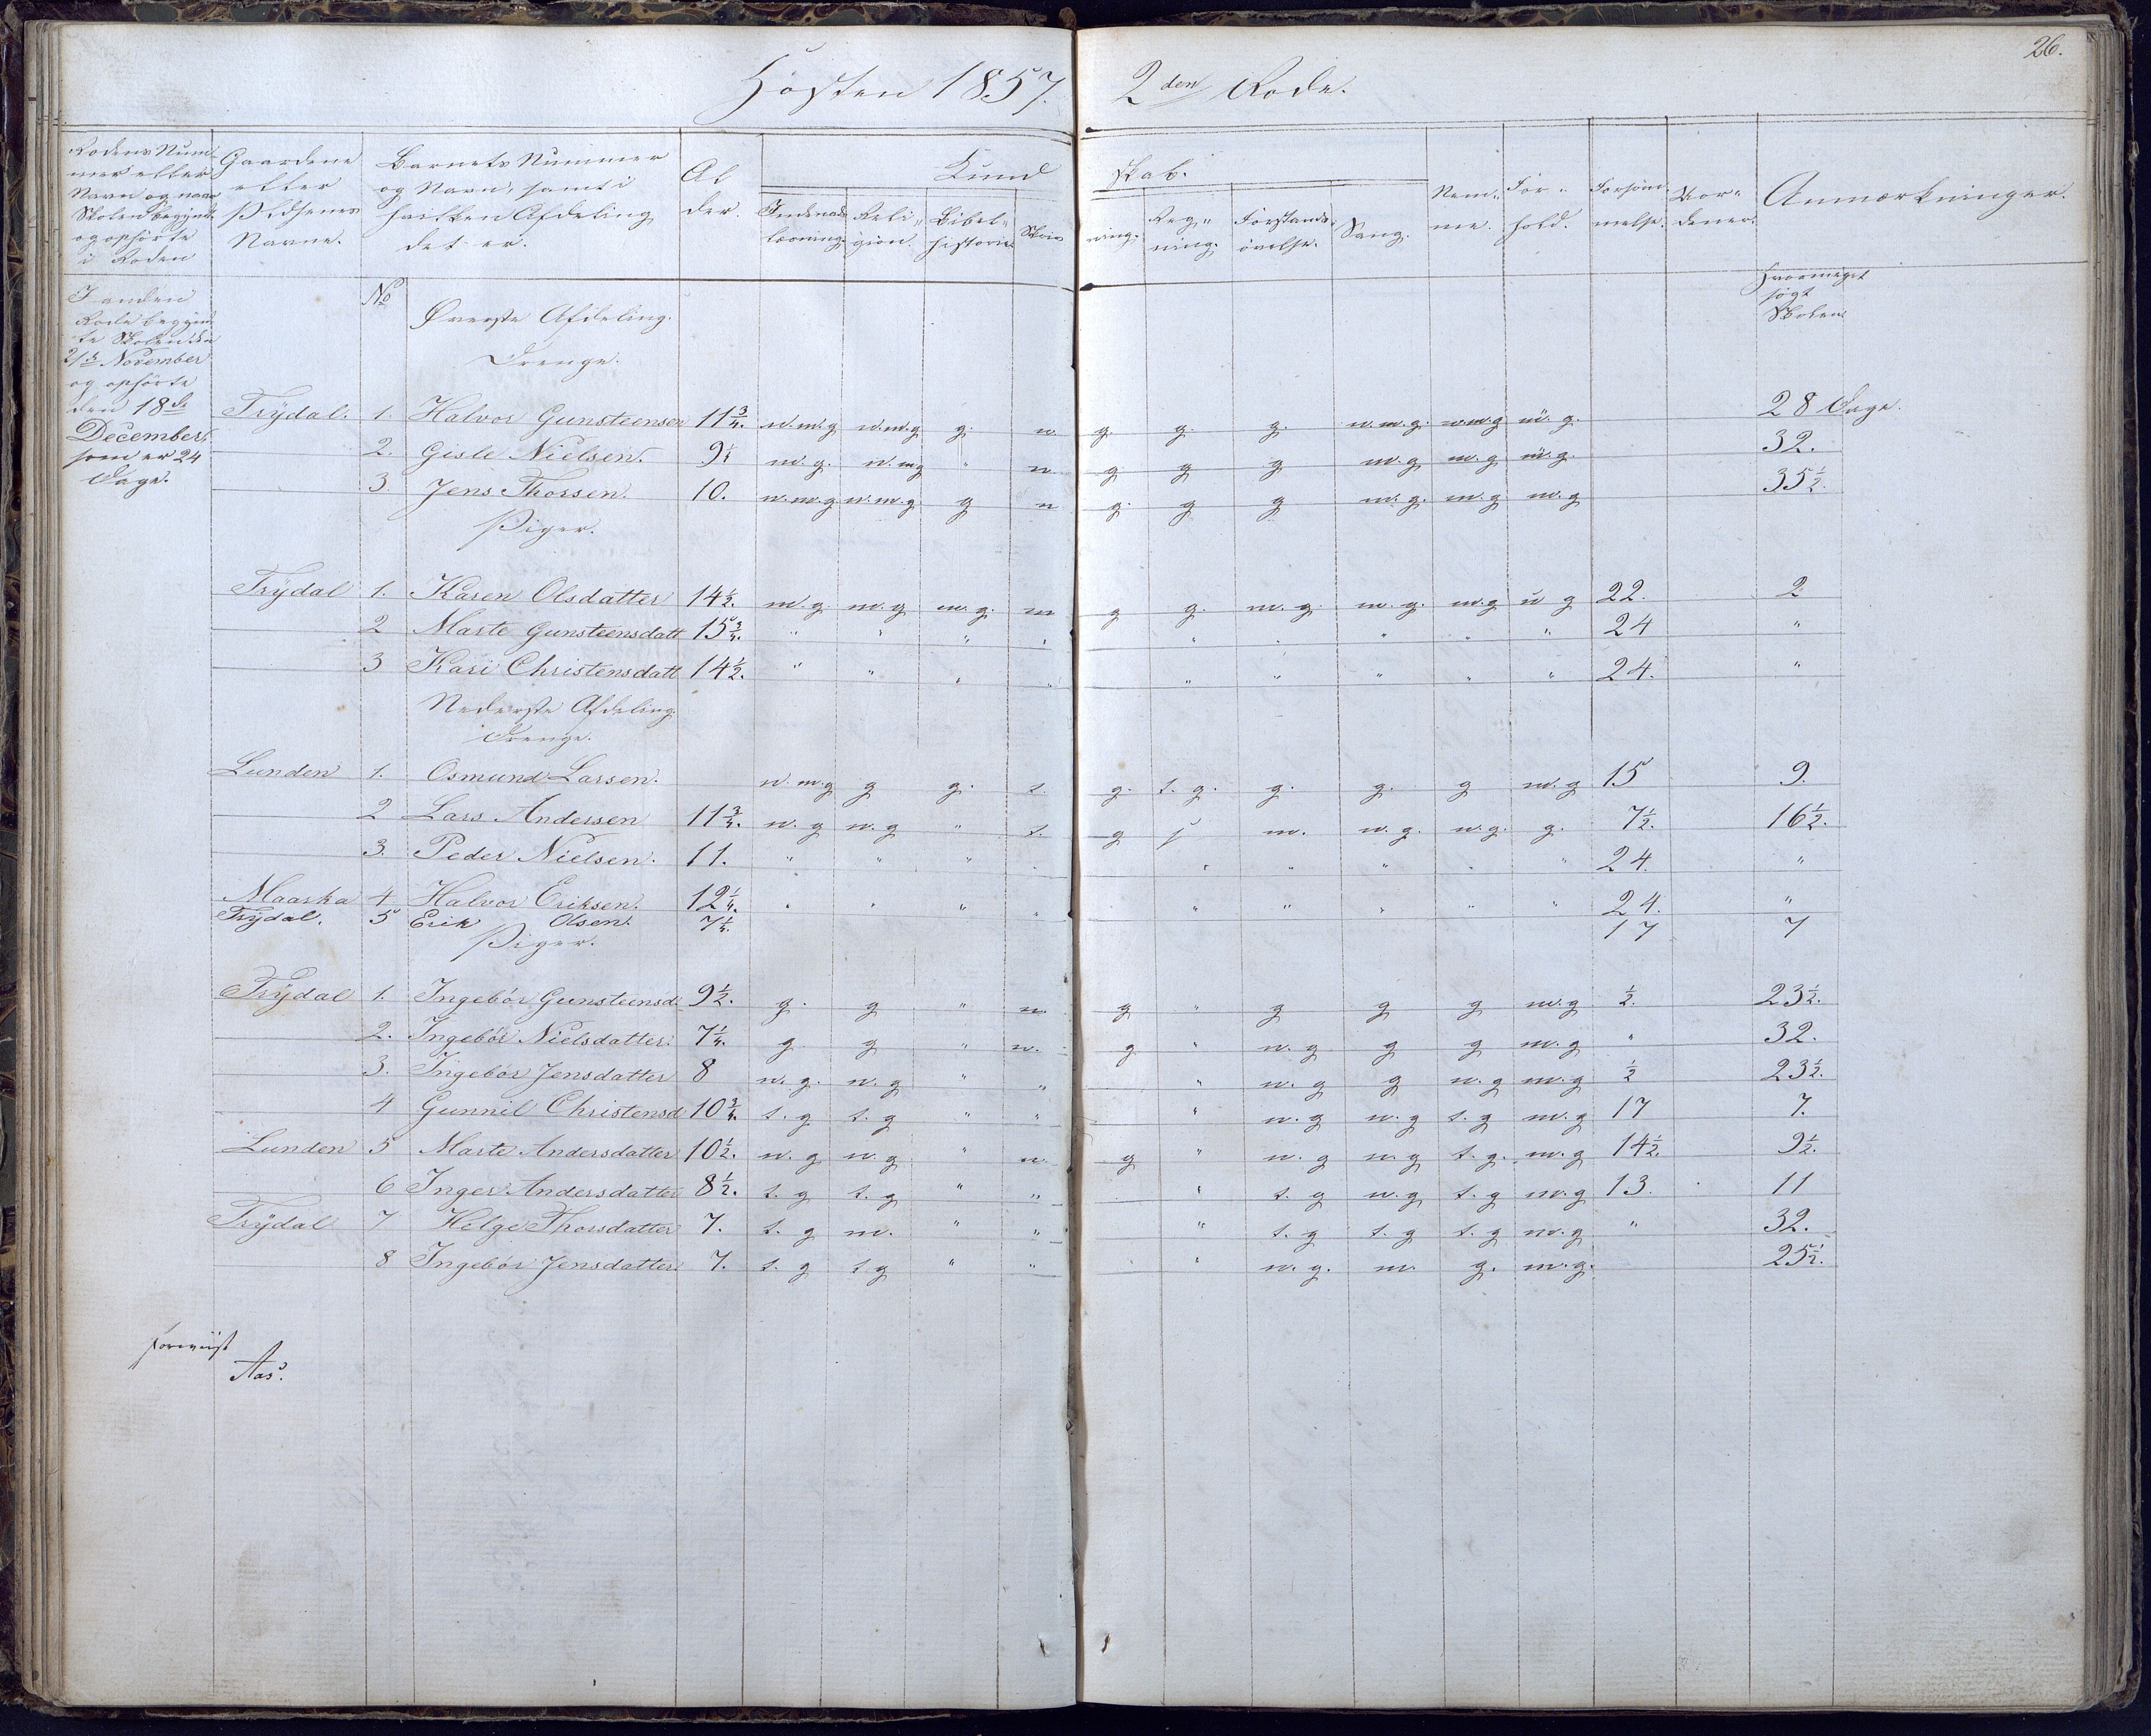 26.
Høsten 1857. 2den Rode.
Rodens Num-
mer eller
Navn og naar
Skolen begyndte
og ophørte
i Roden
Gaardene
eller
Pladsenes
Navne.
Barnets Nummer
og Navn, samt i
hvilken Afdeling
det er.
Al
der.
Kund skab.
Indenads
læsning.
Reli-
gion.
Bibel-
historie.
Skriv
ning.
Reg-
ning.
Forstands-
øvelse.
Sang.
Nem-
me.
For-
hold.
Forsøm-
melse.
Anmærkninger.
I anden
Rode begynd
te Skolen den
November
og ophørte
den 18de
December,
som er 24
Dage.
No
Øverste Afdeling.
Hvormeget
søgt
Skolen
Drenge.
Trÿdal. 1. Halvor Gunsteensen 11 3/4. n.m.g n.m.g g. n g. g. g. n.m.g. n.m.g m.g. 28 Dage.
2. Gisle Nielsen. 9 1/4 m.g. n.mg " n g g g m.g m.g m.g. 32.
3 Jens Thorsen. 10. n.m.g n.m.g g n g. g g m.g. m.g m.g 35 1/2.
Piger.
Trÿdal 1. Karen Olsdatter 14 1/2. m g. m.g m.g. m g g. m.g. m.g. m.g u g 22. 2
2 Marte Gunsteensdatt 15 3/4. " " " " " " " " " " 24 "
3 Kari Christensdatt 14 1/2. " " " " " " " " " 24. "
Nederste Afdeling
Drenge.
Lunden 1. Osmund Larsen. n.m.g g g. t. g. t.g. g. g. g m.g 15 9.
2 Lars Andersen 11 3/4. n.g n.g " t. g m. n.g. n.g. g. 7 1/2. 16 1/2.
3. Peder Nielsen. 11. " " " " " " " " " 24. "
Maaska 4 Halvor Eriksen. 12 1/4. " " " " " " " " " 24. "
Trÿdal. 5 Erik Olsen. 7 1/4. 17 7
Piger.
Trÿdal 1. Ingebor Gunsteensd. 9 1/2. g. g " n. g " g g g m.g 1/2. 23 1/2.
2. Ingebor Nielsdatter. 7 1/4. g g " n. g " n.g g g m.g " 32.
3. Ingebor Jensdatter 8 n.g. n.g " " " n.g g n.g m.g 1/2 23 1/2.
4 Gunnil Christensd 10 3/4. t.g t.g " " " n.g n.g t.g m.g 17 7.
Lunden 5 Marte Andersdatter 10 1/2. n.g n.g " n g " n.g n.g t.g. m.g 14 1/2. 9 1/2.
6 Inger Andersdatter 8 1/2. t.g t.g " " " t.g n.g t.g m.g 13. 11
Trÿdal 7 Helge Thorsdatter 7. t.g m. " " " t.g t.g t.g m.g " 32.
8 Ingebor Jensdatter. 7. t.g t.g " " " n.g. m. g. m.g. 25 1/2.
Foreviist
Aas.